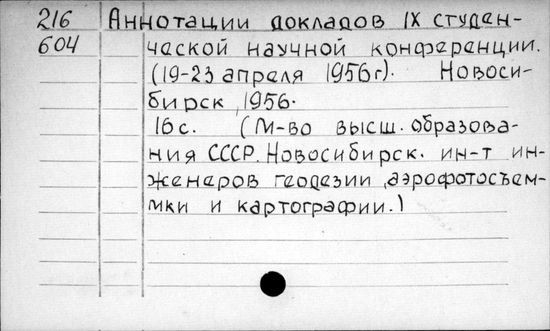 216 Аннотации докладов IX студен-
604 ческой научной конференции.
(19-23 апреля 1956г). Новоси-
бирск, 1956.
16с. (М-во высш. образова-
ния СССР. Новосибирск. ин-т ин-
женеров геодезии, аэрофотосъем-
мки и картографии.)